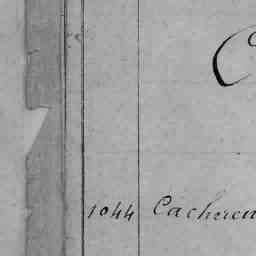 C
1044 Cacheren